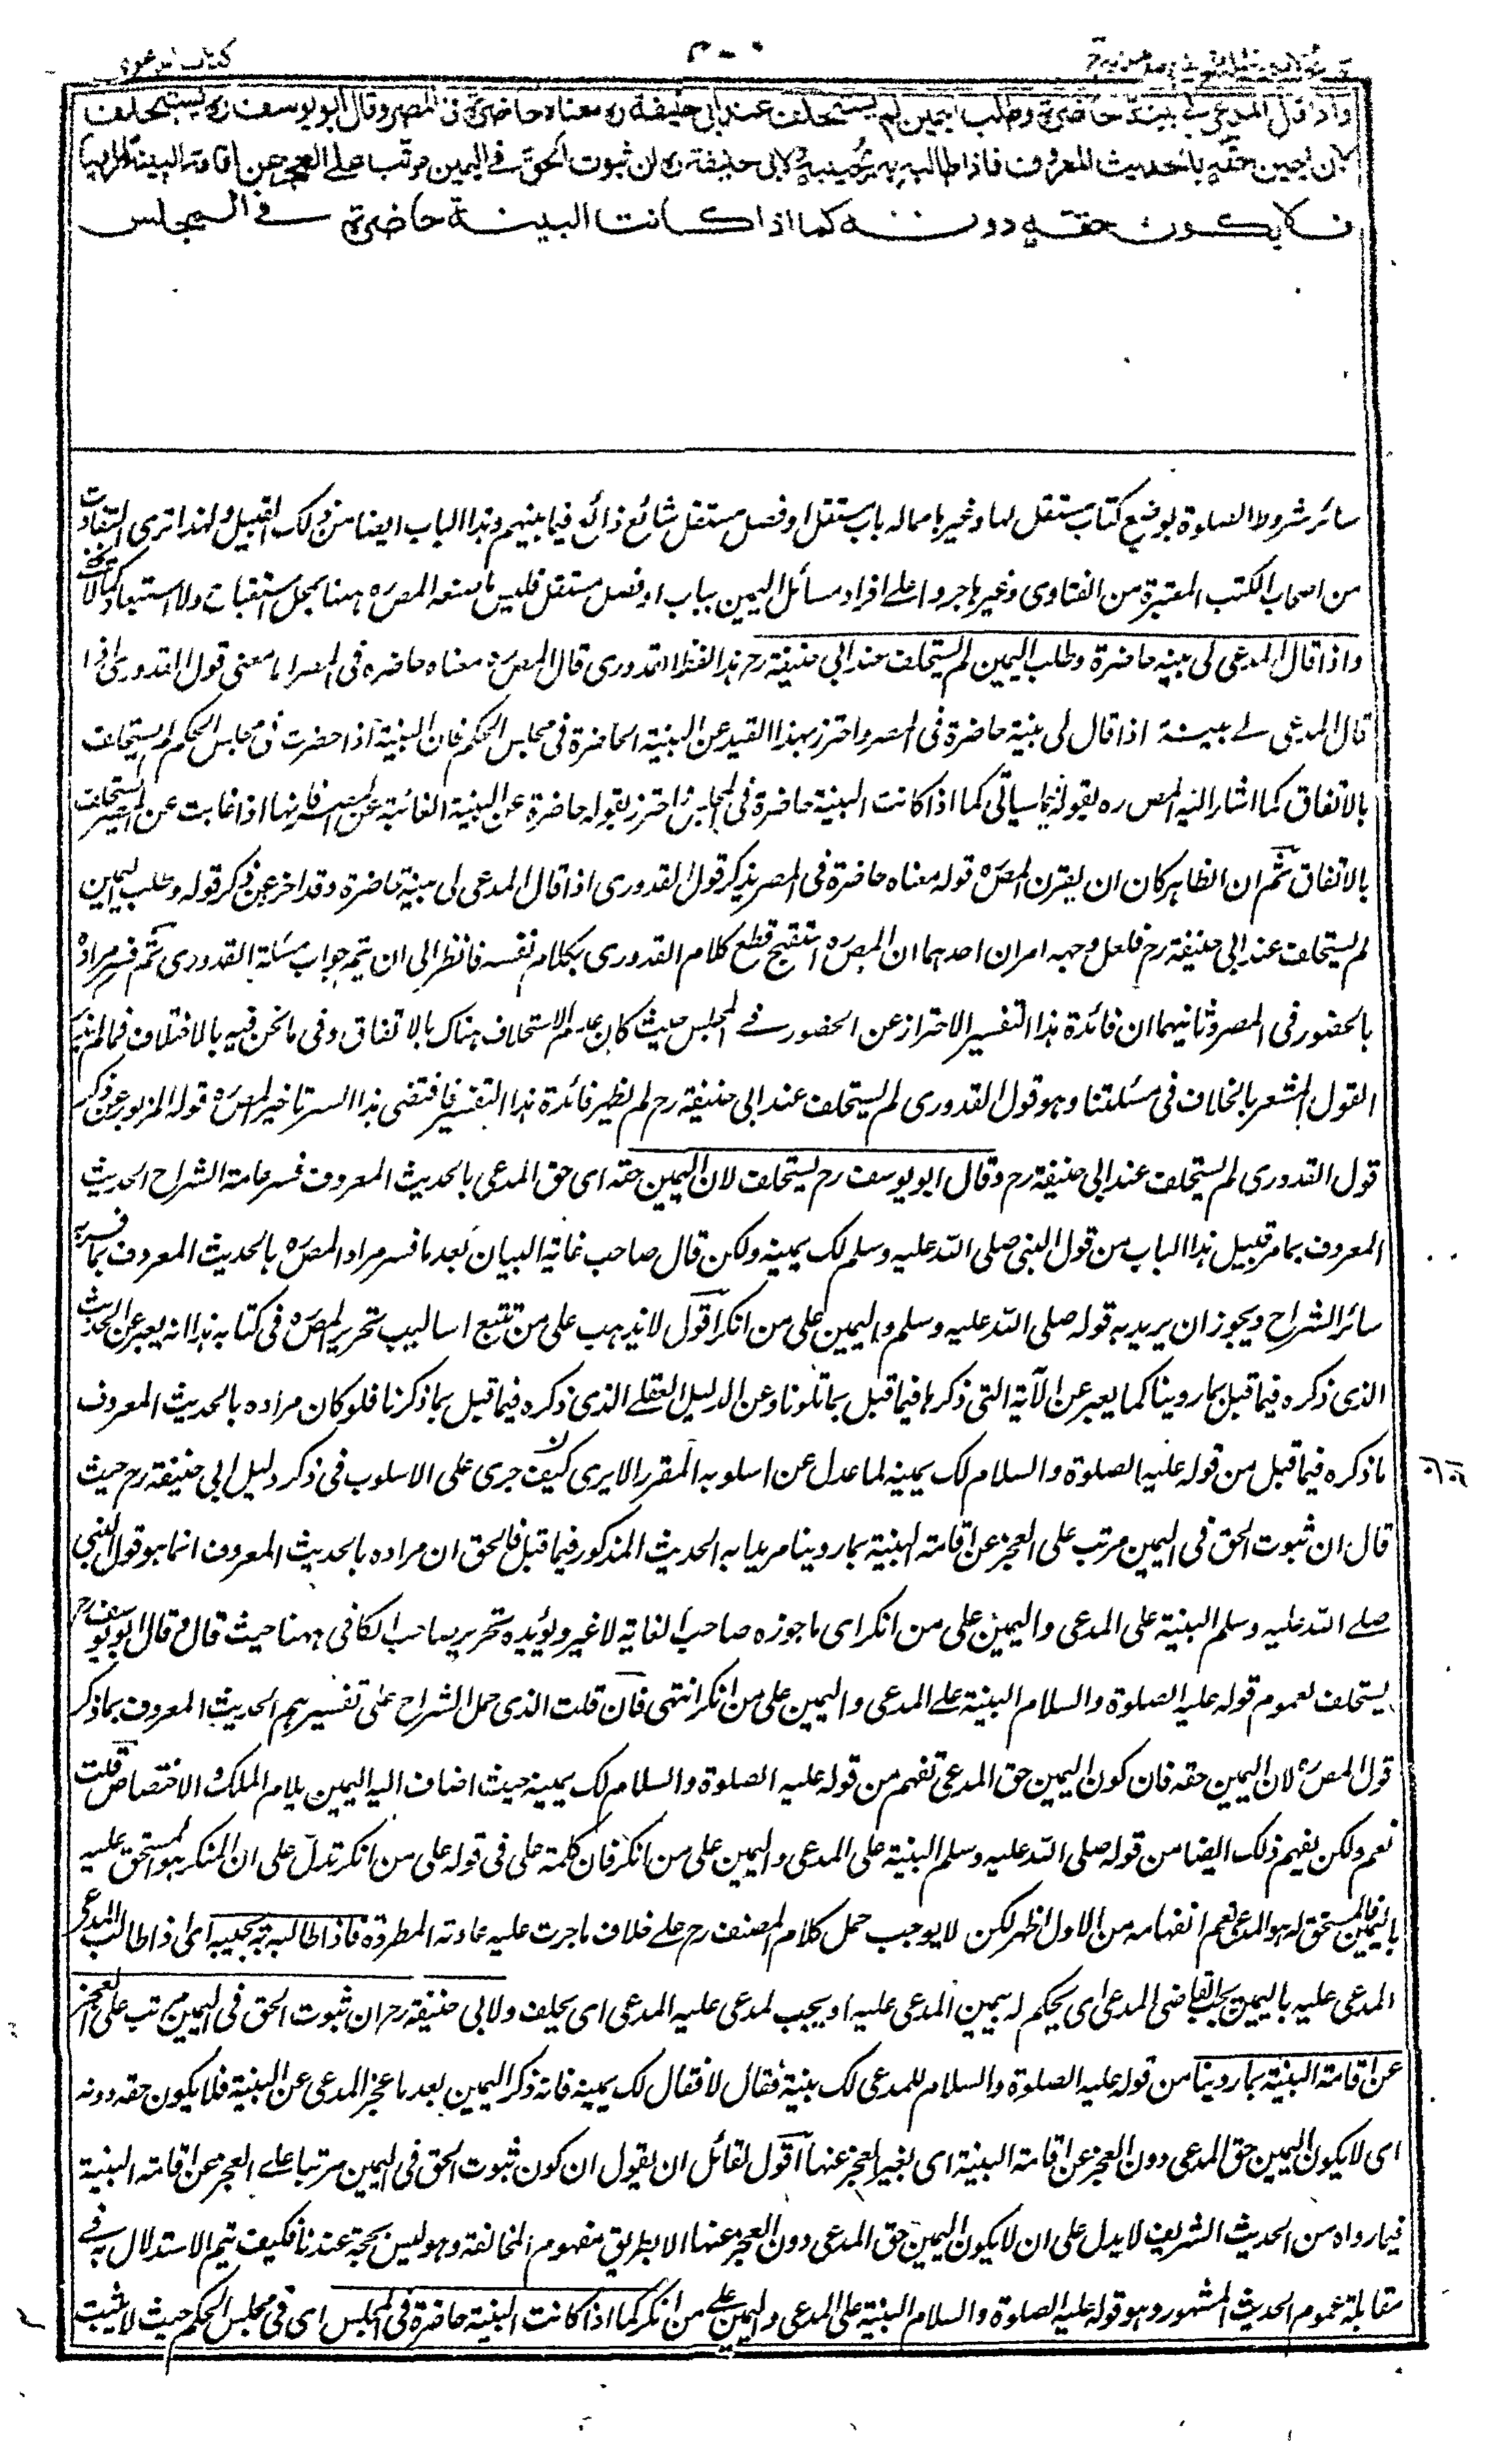 كتاب الدعوى
واذا قال المدعي لي بينة حاضرة وطلب اليمين لم يستحلف عند ابي حنيفة ره معناه حاضرة في المصر وقال ابو يوسف ره يستحلف
لان اليمين حقه بالحديث المعروف فاذا طالبه به يجيبه ولابي حنيفة ره ان ثبوت الحق في اليمين مرتب على العجز عن اقامة البينة لما روينا
فلا يكون حقه دونه كما اذا كانت البينة حاضرة في المجلس
سائر شروط الصلوة بوضع كتاب مستقل لها وغيرها مما له باب مستقل او فصل مستقل شائع ذائع فيما بينهم وهذا الباب ايضا من ذلك القبيل ولهذا ترى الثقات
من اصحاب الكتب المعتبرة من الفتاوى وغيرها جروا على افراد مسائل اليمين بباب او فصل مستقل فليس ما صنعه المص ره ههنا بمحل استقباح ولا استبعاد كما لا يخفى
واذا قال المدعى لى بينه حاضرة وطلب اليمين لم يستحلف عند ابى حنيفة رح هذا لفظ القدورى قال المص ره معناه حاضره فى المصر اى معنى قول القدورى اذا
قال المدعى لے بينة اذا قال لى بينة حاضرة فى المصر واحترز بهذا القيد عن البينة الحاضرة فى مجلس الحكم فان البينة اذا حضرت فى مجلس الحكم لم يستحلف
بالاتفاق كما اشار اليه المص ره بقوله فيما سياتى كما اذا كانت البينة حاضرة فى المجلس واحترز بقوله حاضرة عن البينة الغائبة عن المصر فانها اذا غابت عن المصر يستحلف
بالاتفاق ثم ان الظاهر كان ان يقرن المص ره قوله معناه حاضرة فى المصر بذكر قول القدورى اذا قال المدعى لى بينة حاضرة وقد اخر عن ذكر قوله وطلب اليمين
لم يستحلف عند ابى حنيفة رح فلعل وجهه امران احدهما ان المص ره استقبح قطع كلام القدورى بكلام نفسه فانتظر الى ان يتم جواب مسئلة القدورى ثم فسر مراده
بالحضور فى المصر وثانيهما ان فائدة هذا التفسير الاحتراز عن الحضور فے المجلس حيث كان عدم الاستحلاف هناك بالاتفاق وفى ما نحن فيه بالاختلاف فما لم يذكر
القول المشعر بالخلاف فى مسئلتنا وهو قول القدورى لم يستحلف عند ابى حنيفة رح لم يظهر فائدة هذا التفسير فاقتضى هذا السر تاخير المص ره قوله المزبور عن ذكر
قول القدورى لم يستحلف عند ابى حنيفة رح وقال ابو يوسف رح يستحلف لان اليمين حقه اى حق المدعى بالحديث المعروف فسر عامة الشراح الحديث
المعروف بما مر قبيل هذا الباب من قول النبى صلى الله عليه وسلم لك يمينه ولكن قال صاحب غاية البيان بعد ما فسر مراد المص ره بالحديث المعروف بما فسر به
سائر الشراح ويجوز ان يريد به قوله صلى الله عليه وسلم واليمين على من انكر اقول لا يذهب على من تتبع اساليب تحرير المص ره فى كتابه هذا انه يعبر عن الحديث
الذى ذكره فيما قبل بما روينا كما يعبر عن الآية التى ذكرها فيما قبل بما تلونا وعن الدليل العقلے الذى ذكره فيما قبل بما ذكرنا فلو كان مراده بالحديث المعروف
ما ذكره فيما قبل من قوله عليه الصلوة والسلام لك يمينه لما عدل عن اسلوبه المقرر الا يرى كيف جرى على الاسلوب فى ذكر دليل ابى حنيفة رح حيث
قال ان ثبوت الحق فى اليمين مرتب على العجز عن اقامته البينة بما روينا مريدا به الحديث المذكور فيما قبل فالحق ان مراده بالحديث المعروف انما هو قول النبى
صلے الله عليه وسلم البينة على المدعى واليمين على من انكر اى ما جوزه صاحب الغاية لا غير ويؤيده تحرير صاحب الكافى ههنا حيث قال وقال ابو يوسف رح
يستحلف لعموم قوله عليه الصلوة والسلام البينة على المدعى واليمين على من انكر انتهى فان قلت الذى حمل الشراح على تفسيرهم الحديث المعروف بما ذكر
قول المص ره لان اليمين حقه فان كون اليمين حق المدعى تفهم من قوله عليه الصلوة والسلام لك يمينه حيث اضاف اليه اليمين بلام الملك والاختصاص قلت
نعم ولكن يفهم ذلك ايضا من قوله صلى الله عليه وسلم البينة على المدعى واليمين على من انكر فان كلمة على فى قوله على من انكر تدل على ان المنكر هو المستحق عليه
باليمين فالمستحق له هو المدعى نعم انفهامه من الاول اظهر لكن لا يوجب حمل كلام المصنف رح على خلاف ما جرت عليه عادته المطردة فاذا طالبه به يجيبه اى اذا طالب المدعى
المدعى عليه باليمين يجيب القاضى المدعى اى يحكم له بيمين المدعى عليه او يجيب لمدعى عليه المدعى اى يحلف ولابى حنيفة رح ان ثبوت الحق فى اليمين مرتب على العجز
عن اقامة البينة بما روينا من قوله عليه الصلوة والسلام للمدعى لك بينة فقال لا فقال لك يمينه فانه ذكر اليمين بعد ما عجز المدعى عن البينة فلا يكون حقه دونه
اى لا يكون اليمين حق المدعى دون العجز عن اقامة البينة اى بغير العجز عنها اقول لقائل ان يقول ان كون ثبوت الحق فى اليمين مرتبا على العجز عن اقامته البينة
فيما رواه من الحديث الشريف لا يدل على ان لا يكون اليمين حق المدعى دون العجز عنها الا بطريق مفهوم المخالفة وهو ليس بحجة عندنا فكيف يتم الاستدلال به فے
مقابلة عموم الحديث المشهور وهو قوله عليه الصلوة والسلام البينة على المدعى واليمين على من انكر كما اذا كانت البينة حاضرة فى المجلس اى فى مجلس الحكم حيث لا يثبت